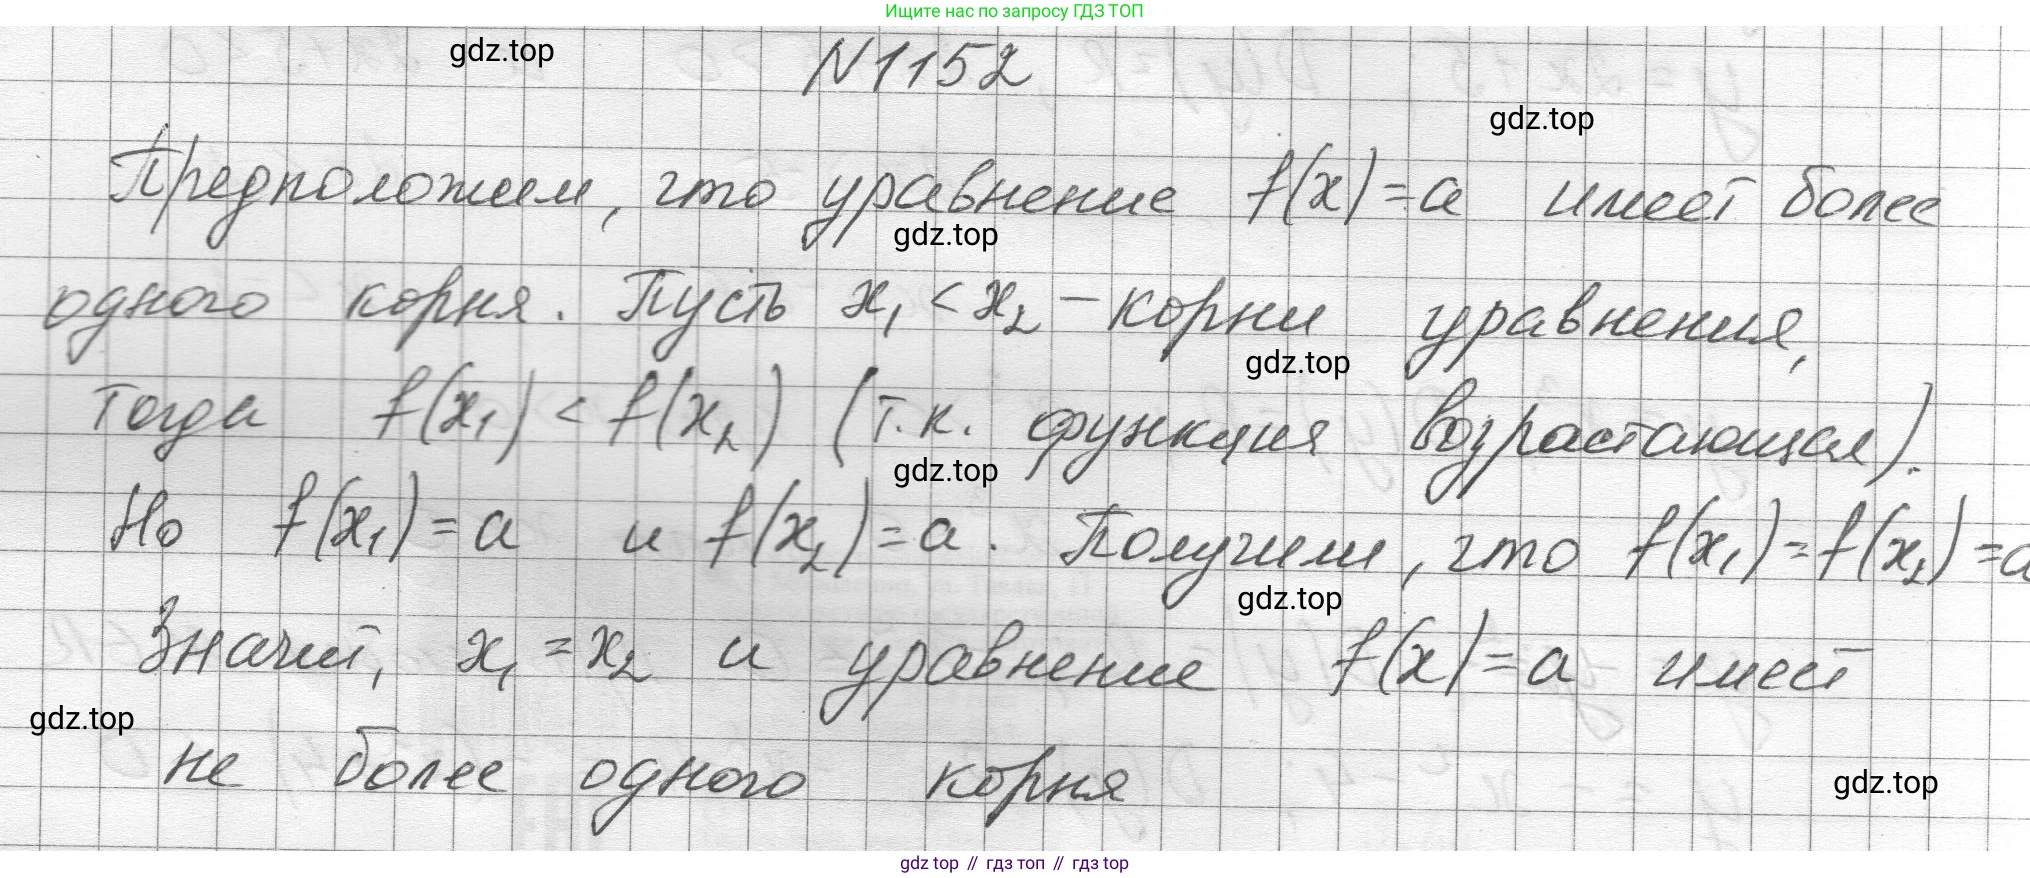 Ищите нас по запросу ГДЗ ТОП
gdz.top
N1152
gdz.top
Предположим, что уравнение f(x)=a имеет более
gdz.top
одного корня. Пусть x₁<x₂ – корни уравнения,
gdz.top
тогда f(x₁)<f(x₂) (т.к. функция возрастающая).
gdz.top
Но f(x₁)=a и f(x₂)=a. Получим, что f(x₁)=f(x₂)=a
gdz.top
Значит, x₁=x₂ и уравнение f(x)=a имеет
gdz.top
не более одного корня
gdz.top
gdz top // гдз топ // гдз top